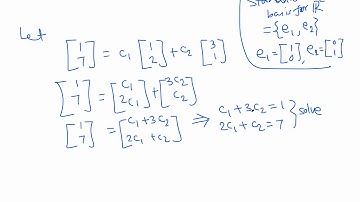 Standard
basis for ℝ²
= {e₁, e₂}
e₁ = [1 0], e₂ = [0 1]
Let
[1 7] = c₁ [1 2] + c₂ [3 1]
[1 7] = [c₁ 2c₁] + [3c₂ c₂]
[1 7] = [c₁+3c₂ 2c₁+c₂] ⇒ c₁+3c₂=1
2c₁+c₂=7 } solve